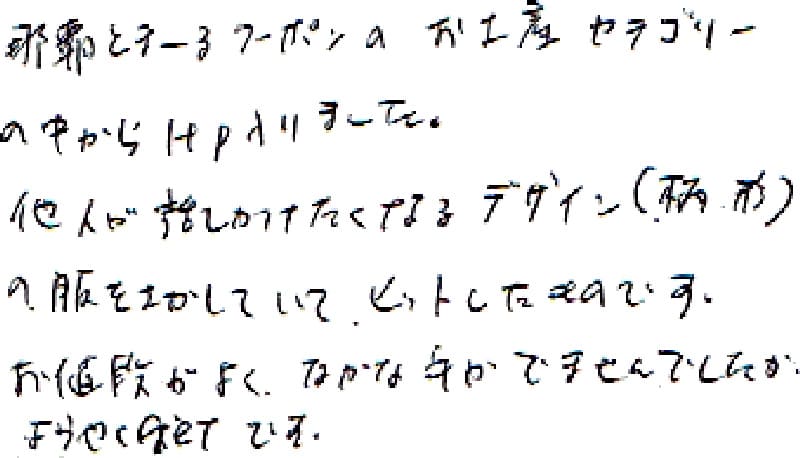 那覇とまーるクーポンの お土産 カテゴリー
の中から HP入りました。
他人が 話しかけたくなる デザイン(柄.形)
の服をさがしていて、ヒットしたものです。
お値段がよく、なかなか手がでませんでしたが、
ようやくGETです。